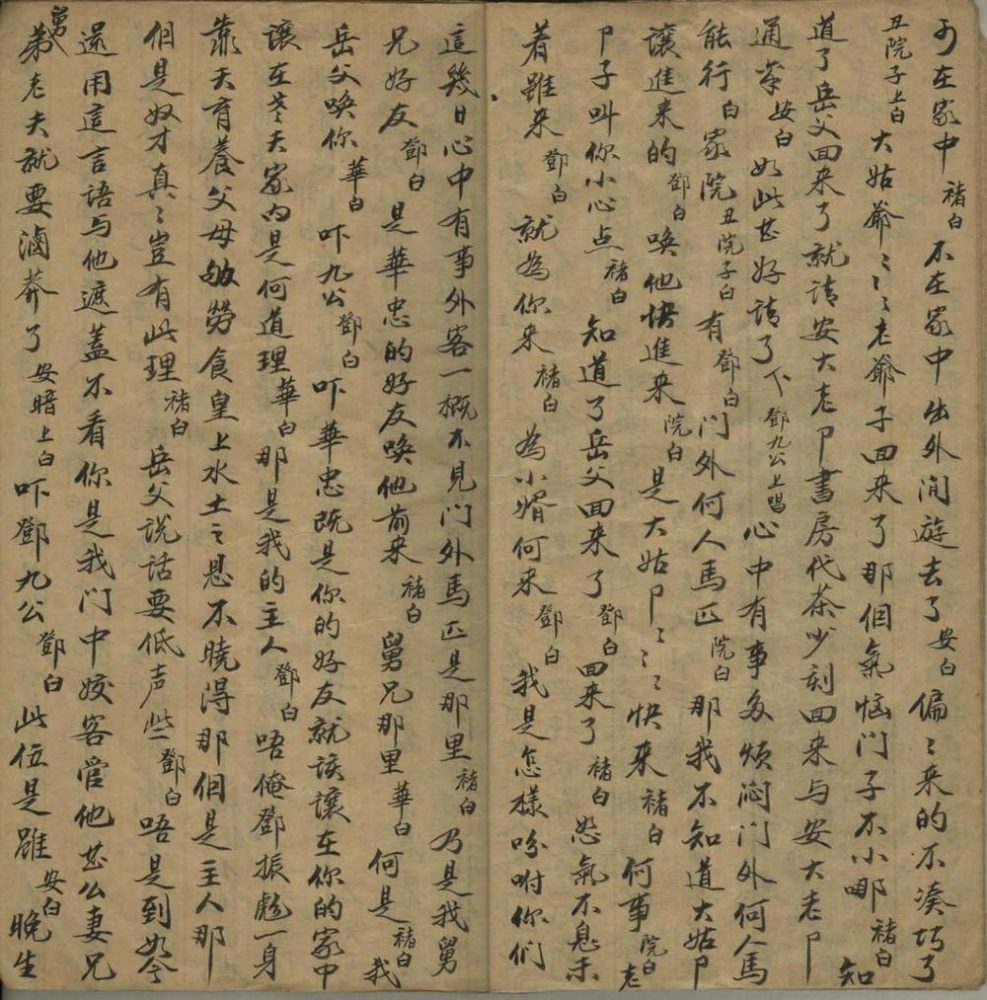 可在家中褚白不在家中出外閒遊去了安白偏〻来的不湊巧了
丑院子上白大姑爺〻〻老爺子回来了那個氣恼门子不小哪褚白知
道了岳父回来了就请安大老卩書房代茶少刻回来与安大老卩
通禀安白如此甚好请了下鄧九公上唱心中有事多烦闷门外何人馬
能行白家院丑院子白有鄧白门外何人馬匹院白那我不知道大姑卩
讓進来的鄧白唤他快進来院白是大姑卩〻〻快来褚白何事院白老
卩子叫你小心点褚白知道了岳父回来了鄧白回来了褚白怒氣不息未
着雖来鄧白就為你来褚白為小婿何来鄧白我是怎樣吩咐你们
這幾日心中有事外客一概不見门外馬匹是那里褚白乃是我舅
兄好友鄧白是華忠的好友唤他前来褚白舅兄那里華白何是褚白我
岳父唤你華白吓九公鄧白吓華忠既是你的好友就该讓在你的家中
讓在老夫家内是何道理華白那是我的主人鄧白唔俺鄧振彪一身
靠天育養父母劬勞食皇上水土之恩不曉得那個是主人那
個是奴才真〻豈有此理褚白岳父说话要低声些鄧白唔是到如今
還用這言語与他遮盖不看你是我门中姣客管他甚么妻兄
舅弟老夫就要滷莽了安暗上白吓鄧九公鄧白此位是雖安白晚生